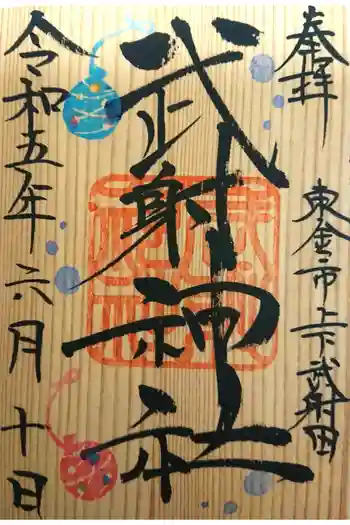 奉拝
東金市上下武射田
武射神社
令和五年六月十日